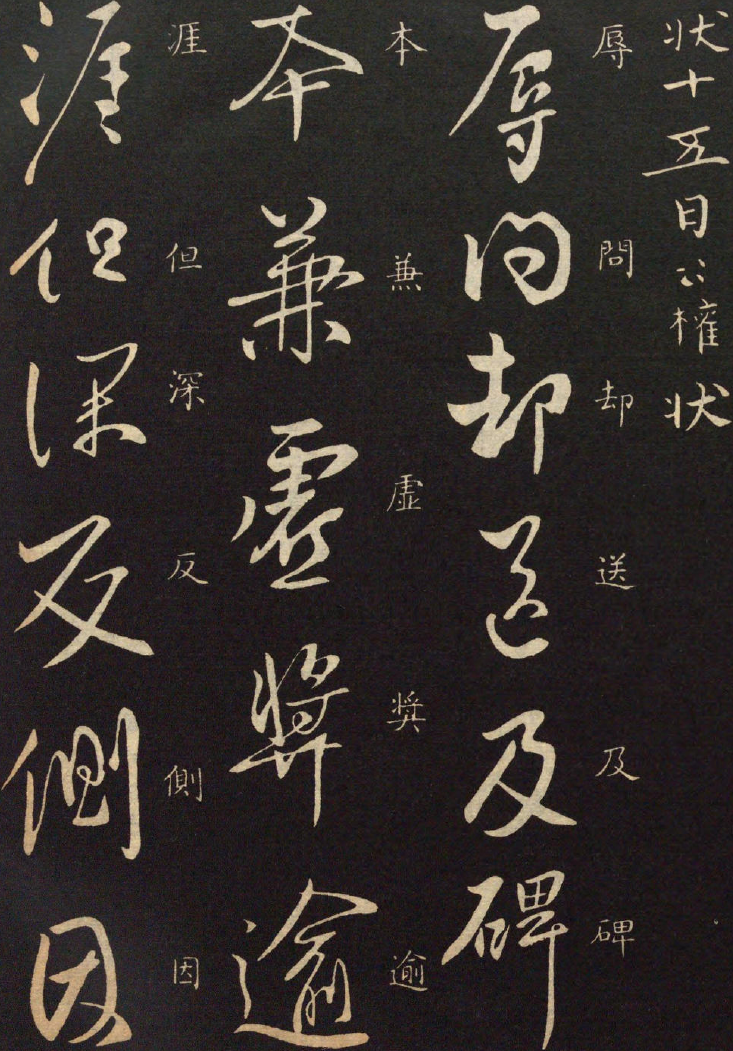 状十五日公權状
辱問却送及碑
辱問却送及碑
本兼虚奨逾
本兼虚奨逾
涯但深反側因
涯但深反側因